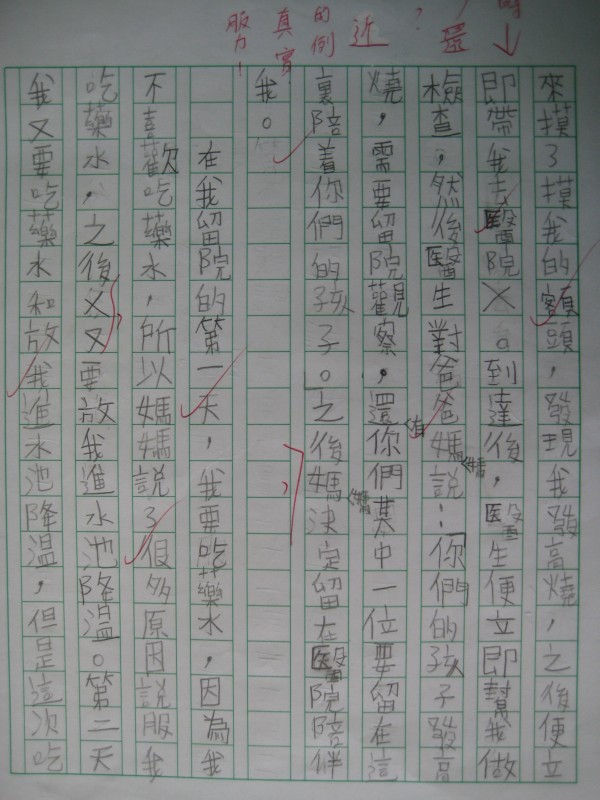 來摸了摸我的額頭，發現我發高燒，之後便立
即帶我去醫院。到達後，醫生便立即幫我做
檢查，然後醫生對爸爸媽媽說：「你們的孩子發高
燒，需要留院觀察，還你們其中一位要留在這
裏陪着你們的孩子。」之後媽媽決定留在醫院陪伴
我。
在我留院的第一天，我要吃藥水，因為我
不喜歡吃藥水，所以媽媽說了很多原因說服我
吃藥水，之後又又要放我進水池降溫。第二天
我又要吃藥水和放我進水池降溫，但是這次吃
還
近
的例
真實
服力！